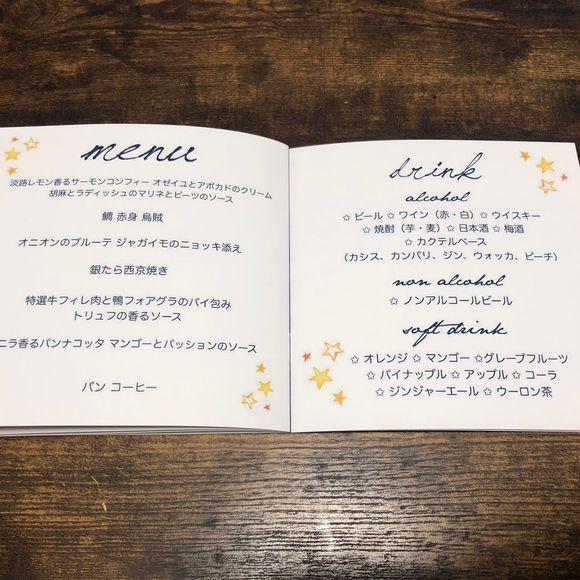 menu
淡路レモン香るサーモンコンフィー オゼイユとアボカドのクリーム
胡麻とラディッシュのマリネとビーツのソース
鯛 赤身 烏賊
オニオンのブルーテ ジャガイモのニョッキ添え
銀たら西京焼き
特選牛フィレ肉と鴨フォアグラのパイ包み
トリュフの香るソース
ニラ香るパンナコッタ マンゴーとパッションのソース
パン コーヒー
drink
alcohol
✩ ビール ✩ ワイン（赤・白）✩ ウイスキー
✩ 焼酎（芋・麦）✩ 日本酒 ✩ 梅酒
✩ カクテルベース
（カシス、カンパリ、ジン、ウォッカ、ピーチ）
non alcohol
✩ ノンアルコールビール
soft drink
✩ オレンジ ✩ マンゴー ✩グレープフルーツ
✩ パイナップル ✩ アップル ✩ コーラ
✩ ジンジャーエール ✩ ウーロン茶